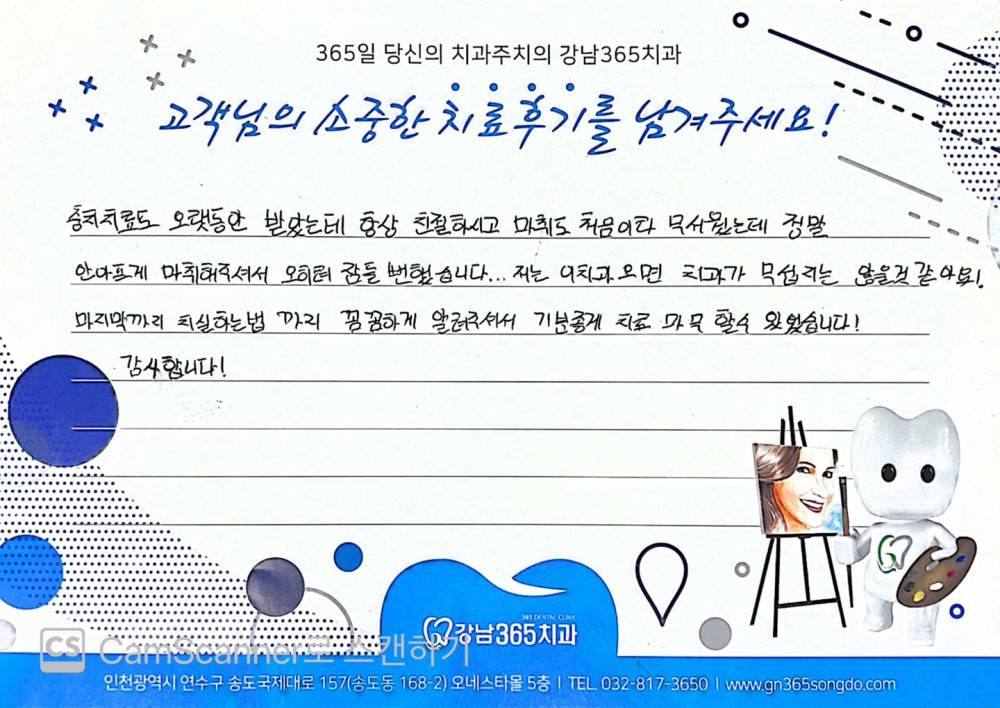 365일 당신의 치과주치의 강남365치과
고객님의 소중한 치료후기를 남겨주세요!
충치치료도 오랫동안 받았는데 항상 친절하시고 마취도 처음이라 무서웠는데 정말
안아프게 마취해주셔서 오히려 잠들 뻔했습니다... 저는 이치과오면 치과가 무섭지는 않을것 같아요!
마지막까지 치실하는법 까지 꼼꼼하게 알려주셔서 기분좋게 치료 마무 할수 있었습니다!
감사합니다!
365 DENTAL CLINIC
강남365치과
CS CamScanner로 스캔하기
인천광역시 연수구 송도국제대로 157(송도동 168-2) 오네스타몰 5층 | TEL. 032-817-3650 | www.gn365songdo.com